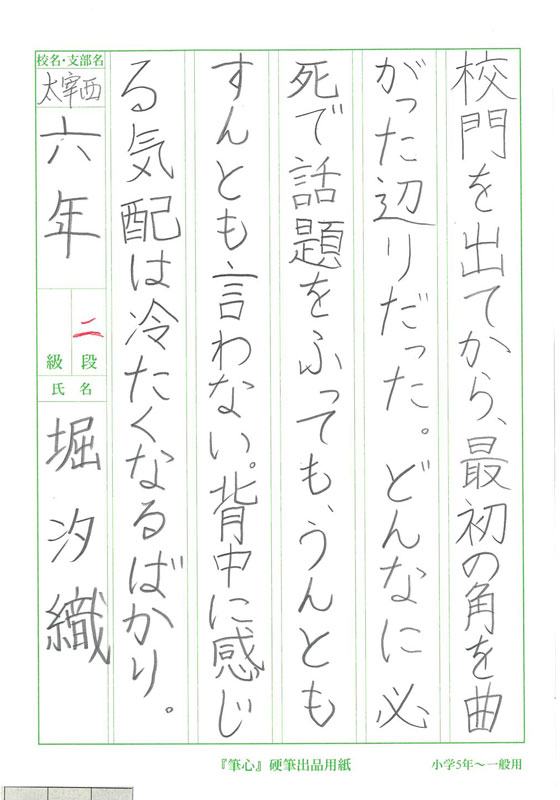 校門を出てから、最初の角を曲
がった辺りだった。どんなに必
死で話題をふっても、うんとも
すんとも言わない。背中に感じ
る気配は冷たくなるばかり。
校名・支部名
太宰西
六年
二
級 段
氏名
堀汐織
『筆心』硬筆出品用紙
小学5年〜一般用